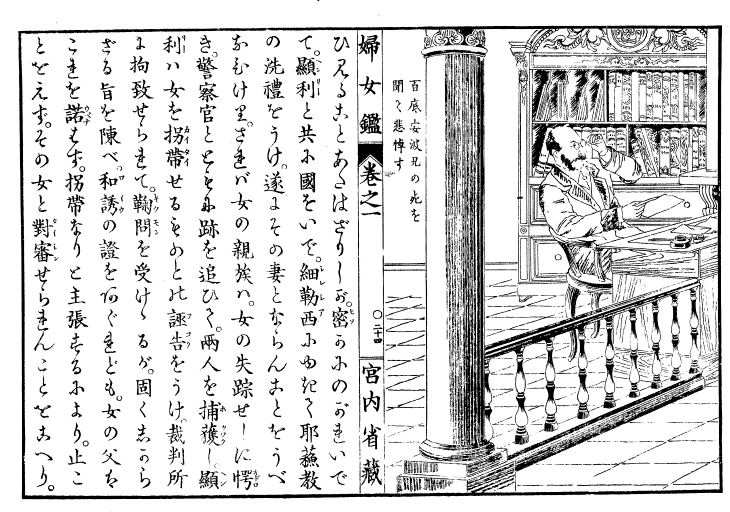 百底安波兄の死を
聞て悲悼す
婦女鑑 巻之一 〇二十四 宮内省藏
ひ見ることあたはざりしが。密かにのがれいで
て。顯利と共に國をいで。細勒西にゆきて耶蘇教
の洗禮をうけ。遂にその妻とならんことをうべ
なひけり。されバ女の親族ハ。女の失踪せしに愕
き。警察官とともに跡を追ひて。兩人を捕獲し。顯
利ハ女を拐帶せるものとの誣告をうけ。裁判所
に拘致せられて。鞠問を受けゝるが。固くしから
ざる旨を陳べ。和誘の證をあぐれども。女の父ハ
これを諾はず。拐帶なりと主張するにより。止こ
とをえず。その女と對審せられんことをこへり。